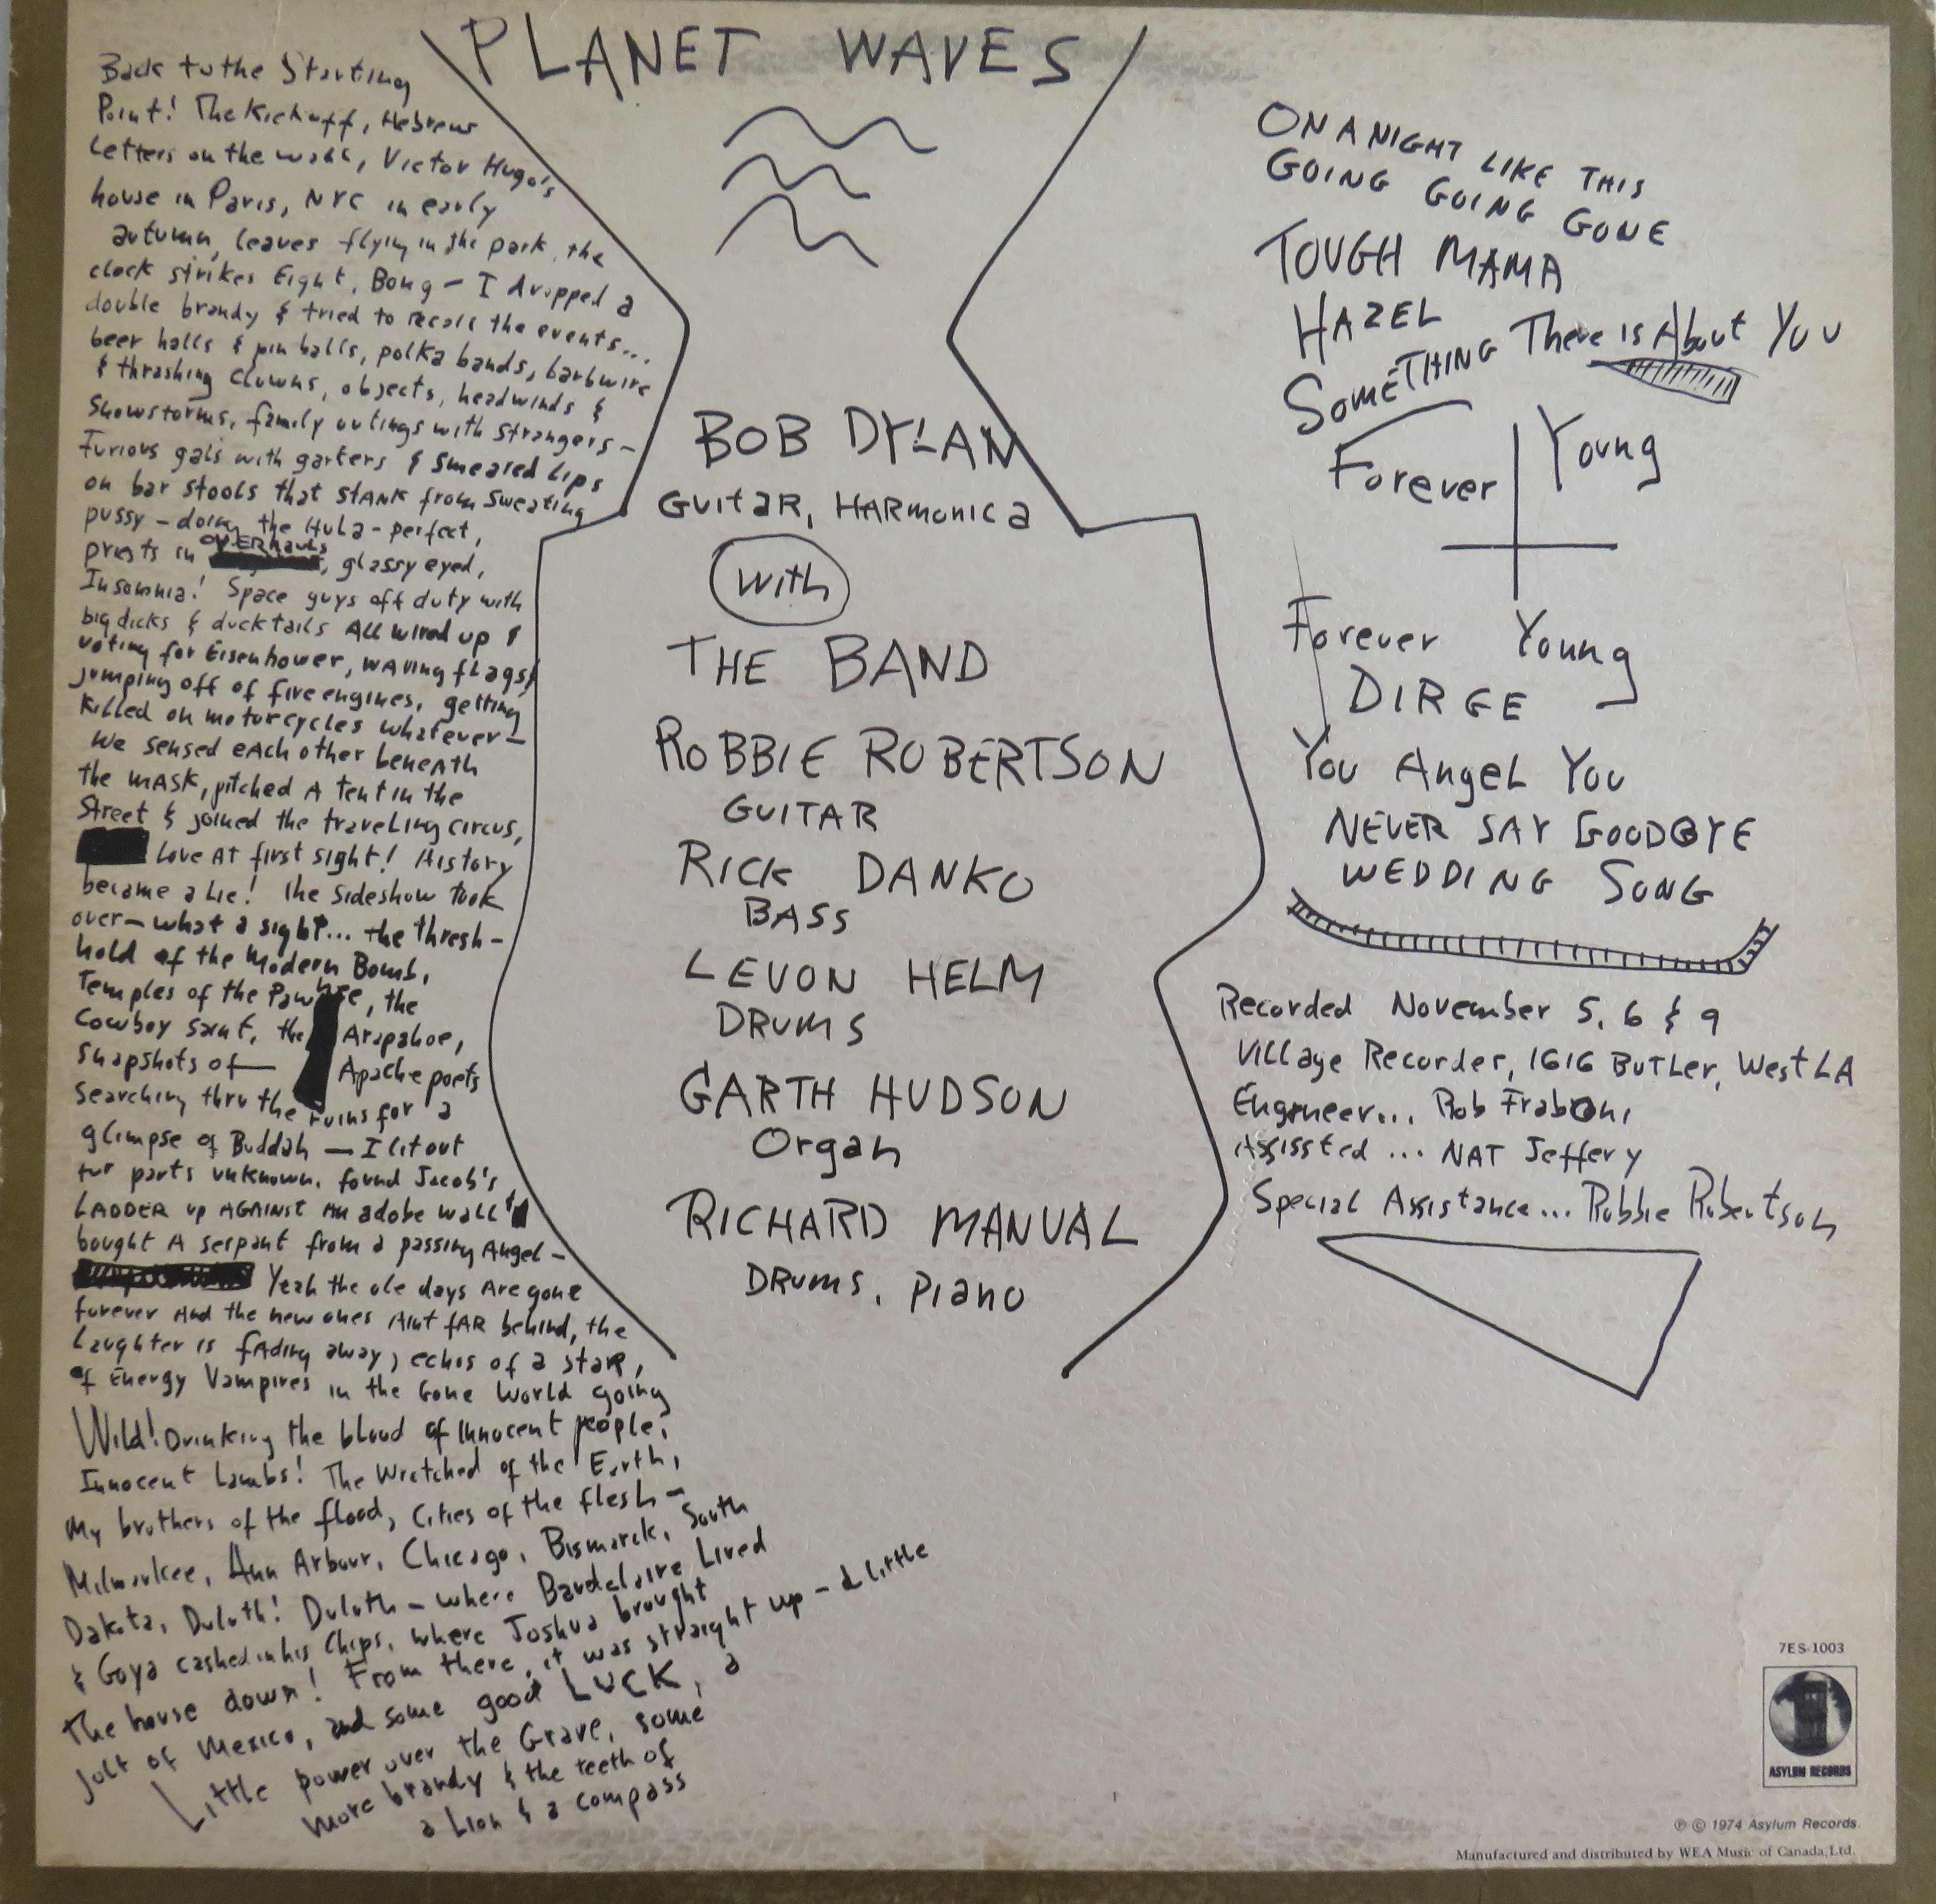 PLANET WAVES
Back to the Starting
Point! The Kickoff, Hebrew
Letters on the wall, Victor Hugo's
house in Paris, NYC in early
autumn, leaves flying in the park, the
clock strikes Eight, Bong - I dropped a
double brandy & tried to recall the events...
beer halls & pin balls, polka bands, barbwire
& thrashing clowns, objects, headwinds &
Snowstorms, family outings with strangers -
Furious gals with garters & smeared Lips
on bar stools that stANK from sweating
pussy - doing the Hula - perfect,
priests in OVERhauls, glassy eyed,
Insomnia! Space guys off duty with
big dicks & ducktails All wired up &
voting for Eisenhower, waving flags &
jumping off of fire engines, getting
killed on motorcycles whatever -
We sensed eAch other beneAth
the mASK, pitched A tent in the
Street & joined the traveling circus,
Love At first sight! History
became a Lie! the sideshow took
over - what a sight... the thresh-
hold of the Modern Bomb,
Temples of the Pawnee, the
Cowboy saint, the Arapahoe,
snapshots of - Apache poets
searching thru the ruins for a
glimpse of Buddah - I lit out
for parts unknown, found Jacob's
LADDER up AGAINST An adobe wall &
bought A serpant from a passing Angel -
Yeah the ole days Are gone
forever And the new ones Aint fAR behind, the
Laughter is fAding away, echos of a staR,
of Energy Vampires in the Gone World going
Wild! Drinking the blood of innocent people,
Innocent Lambs! The Wretched of the Earth,
My brothers of the flood, Cities of the flesh -
Milwaukee, Ann Arbour, Chicago, Bismarck, South
Dakota, Duluth! Duluth - where Baudelaire Lived
& Goya cashed in his Chips, where Joshua brought
the house down! From there, it was straight up - a little
jolt of Mexico, and some good LUCK, a
Little power over the Grave, some
more brandy & the teeth of
a Lion & a compass
BOB DYLAN
GUitaR, HARmonica
with
THE BAND
ROBBIE ROBERTSON
GUITAR
RICK DANKO
BASS
LEVON HELM
DRUMS
GARTH HUDSON
Organ
RICHARD MANUAL
DRUMS, Piano
ON A NIGHT LIKE THIS
GOING GOING GONE
TOUGH MAMA
HAZEL
SOMETHING There is About You
Forever Young
Forever Young
DIRGE
You Angel You
NEVER SAY GOODBYE
WEDDING SONG
Recorded November 5, 6 & 9
Village Recorder, 1616 BUTLer, West LA
Engineer... Rob Fraboni
Assissted ... NAT Jeffery
Special Assistance... Robbie Robertson
7ES-1003
ASYLUM RECORDS
℗ © 1974 Asylum Records.
Manufactured and distributed by WEA Music of Canada, Ltd.